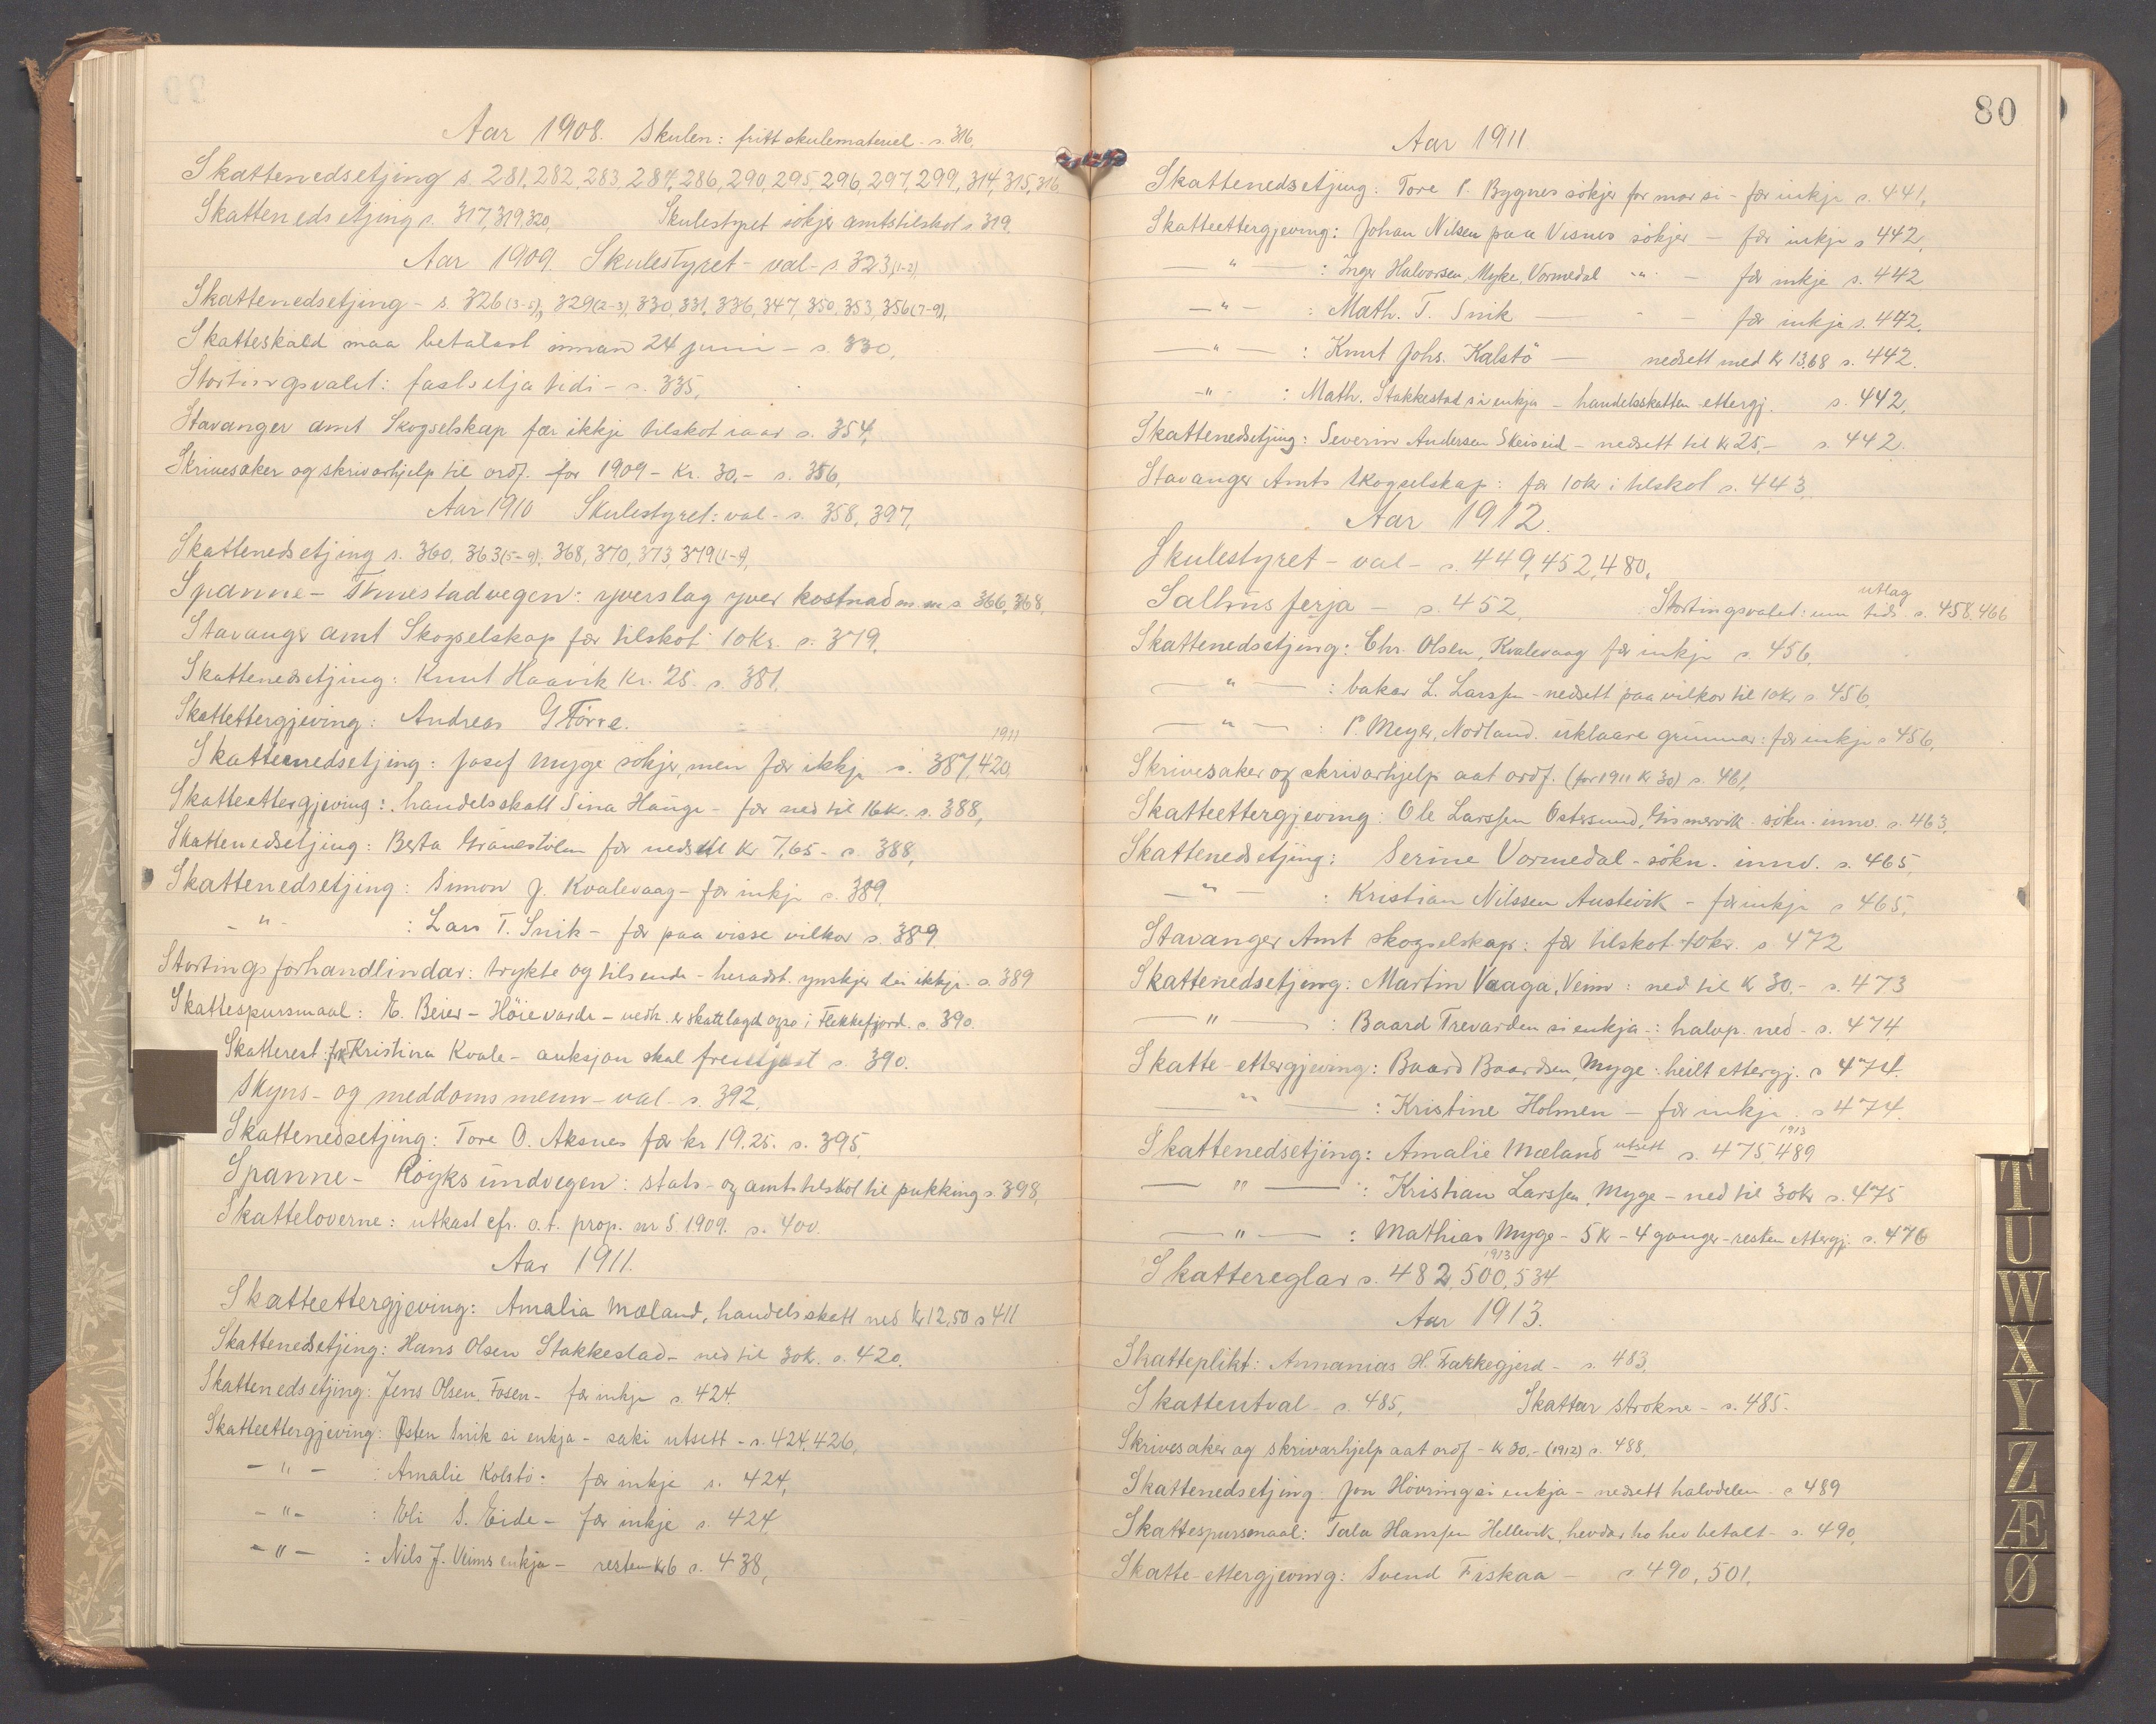 Aar 1908. Skulen: fritt skulemateriel - s. 316,
Skattenedsetjing s. 281, 282, 283, 284, 286, 290, 295, 296, 297, 299, 314, 315, 316
Skattenedsetjing s. 317, 319, 320, Skulestyret sökjer amtstilskot s. 319.
Aar 1909. Skulestyret - val - s. 323 (1-2)
Skattenedsetjing - s. 326 (3-5), 329 (2-3), 330, 331, 336, 347, 350, 353, 356 (7-9),
Skatteskald maa betalast innan 24 juni - s. 330,
Stortingsvalet: fastsetja tidi - s. 335,
Stavanger amt Skogselskap fær ikkje tilskot i aar s. 354,
Skrivesaker og skrivarhjelp til ordf. for 1909 - Kr. 30,- s. 356,
Aar 1910 Skulestyret: val - s. 358, 397,
Skattenedsetjing s. 360, 363 (5-9), 368, 370, 373, 379 (1-9),
Spanne - vegen: yverslag yver kostnad m. m. s. 366, 368,
Stavanger amt Skogselskap fær tilskot: 10 Kr. s. 379,
Skattenedsetjing: Knut Haavik Kr. 25. s. 381,
Skattettergjeving: Andreas G Förre.
1911
Skattenedsetjing: Josef Myge sökjer, men fær ikkje s. 387, 420,
Skatteettergjeving: handelsskatt Sina Hauge - fær ned til 16 kr. s. 388,
Skattenedsetjing: Berta Grönestölen fær neds. til Kr 7,65 - s. 388,
Skattenedsetjing: Simon J. Kvalevaag - fær inkje s. 389,
- " - : Lars T. Snik - fær paa visse vilkor s. 389.
Stortingsforhandlindar: trykte og tilsende - heradst. ynskjer dei ikkje - s. 389
Skattespursmaal: E. Beier - Höievarde - vedk. er skattlagd ogso i Flekkefjord. s. 390.
Skatterest: frk Kristina Kvale - auksjon skal s. 390.
Skyns- og meddomsmenn - val - s. 392,
Skattenedsetjing: Tore O. Aksnes fær kr 19,25. s. 395,
Spanne - Röyksundvegen: stats- og amtstilskot til pukking s. 398,
Skatteloverne: utkast cfr. o.t. prop. nr 5 1909. s. 400.
Aar 1911.
Skatteettergjeving: Amalia Mæland, handelsskatt ned Kr 12,50 s 411
Skattenedsetjing: Hans Olsen Stakkestad - ned til 30 k. s. 420,
Skattenedsetjing: Jens Olsen Fosen - fær inkje s 424.
Skatteettergjeving: Østen Snik si enkja - saki utsett - s. 424, 426,
- " - : Amalie Kolstö: fær inkje s. 424,
- " - : Eli S. Eide - fær inkje s. 424
- " - : Nils J. Veims enkja - resten kr 6 s. 438,
80
Aar 1911
Skattenedsetjing: Tore P. Bygnes sökjer for mor si - fær inkje s. 441,
Skatteettergjeving: Johan Nilsen paa Visnes sökjer - fær inkje s 442,
- " - : Inger Halvorsen, Myke, Vormedal - " - fær inkje s. 442
- " - : Math. T. Snik - - - fær inkje s. 442,
- " - : Knut Johs. Kalstö - nedsett med kr 13,68 s. 442.
- " - : Math. Stakkestad si enkja - handelsskatten ettergj. s. 442,
Skattenedsetjing: Severin Andersen Skeiseid - nedsett til kr 25,- s. 442.
Stavanger Amts Skogselskap: fær 10 kr i tilskot s. 443,
Aar 1912.
Skulestyret - val - s. 449, 452, 480,
utlag
Salhusferja - s. 452, Stortingsvalet: um tidi s. 458, 466
Skattenedsetjing: Chr. Olsen, Kvalevaag fær inkje s. 456,
- " - : bakar L. Larssen - nedsett paa vilkor til 10 kr s 456,
- " - : P. Meyer, Nordland. uklaare grunnar: fær inkje s 456,
Skrivesaker og skrivarhjelp aat ordf. (for 1911 kr 30) s. 461,
Skatteettergjeving: Ole Larssen Östesund, Gismervik. sökn. innv. s. 463,
Skattenedsetjing: Serine Vormedal - sökn. innv. s. 465,
- " - : Kristian Nilssen Austevik - fær inkje s 465,
Stavanger Amt skogselskap: fær tilskot 10 kr. s 472
Skattenedsetjing: Martin Vaaga, Veim: ned til kr 30,- s. 473
- " - : Baard Trevarden si enkja -: halvp. ned - s. 474
Skatte-ettergjeving: Baard Baardsen, Myge: heilt ettergj. s 474.
- " - : Kristine Holmen - fær inkje. s 474.
1913
Skattenedsetjing: Amalie Mæland utsett s. 475 489
- " - : Kristian Larssen, Myge - ned til 30 kr s. 475
- " - : Mathias Myge - 5 kr - 4 gonger - resten ettergj. s. 476
1913
Skattereglar s. 482, 500, 534
Aar 1913.
Skatteplikt: Annanias H. Fakkegjerd - s. 483,
Skatteutval - s. 485, Skattar strokne - s. 485.
Skrivesaker og skrivarhjelp aat ordf - kr 30,- (1912) s. 488,
Skattenedsetjing: Jon Hövring si enkja - nedsett halvdelen - s 489
Skattespursmaal: Tala Hanssen Hellevik, hevdar ho hev betalt - s. 490,
Skatte-ettergjeving: Svend Fiskaa - s 490, 501,
T
U
W
X
Y
Z
Æ
Ø